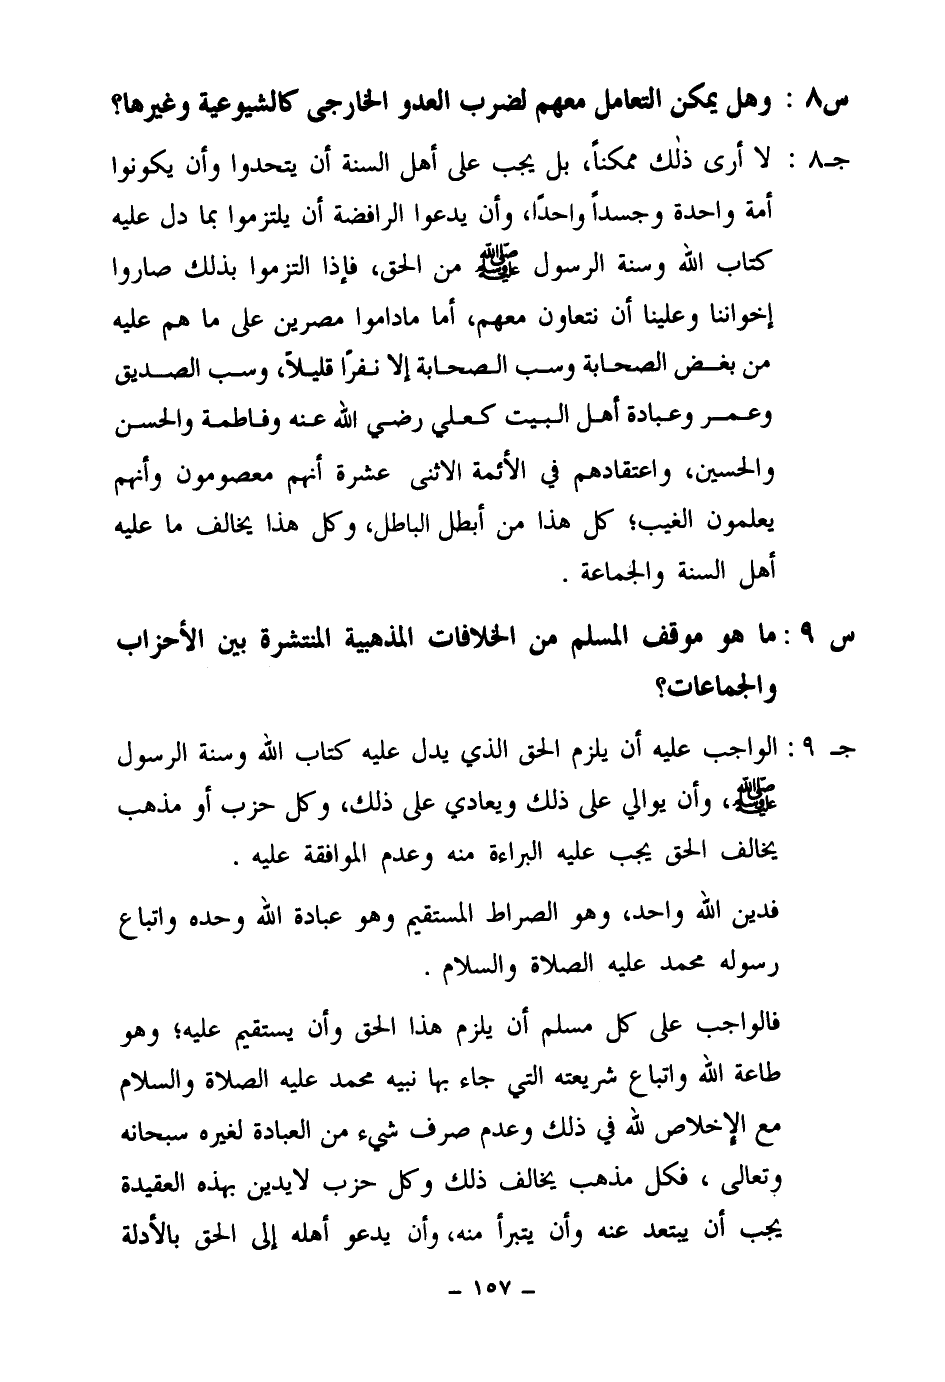 س٨ : وهل يمكن التعامل معهم لضرب العدو الخارجى كالشيوعية وغيرها؟
جـ٨ : لا أرى ذلك ممكناً، بل يجب على أهل السنة أن يتحدوا وأن يكونوا
أمة واحدة وجسداً واحدًا، وأن يدعوا الرافضة أن يلتزموا بما دل عليه
كتاب الله وسنة الرسول ﷺ من الحق، فإذا التزموا بذلك صاروا
إخواننا وعلينا أن نتعاون معهم، أما ماداموا مصرين على ما هم عليه
من بغض الصحابة وسب الصحابة إلا نفرًا قليلاً، وسب الصديق
وعمر وعبادة أهل البيت كعلي رضي الله عنه وفاطمة والحسن
والحسين، واعتقادهم في الأئمة الاثنى عشرة أنهم معصومون وأنهم
يعلمون الغيب؛ كل هذا من أبطل الباطل، وكل هذا يخالف ما عليه
أهل السنة والجماعة .
س ٩ : ما هو موقف المسلم من الخلافات المذهبية المنتشرة بين الأحزاب
والجماعات؟
جـ ٩ : الواجب عليه أن يلزم الحق الذي يدل عليه كتاب الله وسنة الرسول
ﷺ، وأن يوالي على ذلك ويعادي على ذلك، وكل حزب أو مذهب
يخالف الحق يجب عليه البراءة منه وعدم الموافقة عليه .
فدين الله واحد، وهو الصراط المستقيم وهو عبادة الله وحده واتباع
رسوله محمد عليه الصلاة والسلام .
فالواجب على كل مسلم أن يلزم هذا الحق وأن يستقيم عليه؛ وهو
طاعة الله واتباع شريعته التي جاء بها نبيه محمد عليه الصلاة والسلام
مع الإخلاص لله في ذلك وعدم صرف شيء من العبادة لغيره سبحانه
وتعالى ، فكل مذهب يخالف ذلك وكل حزب لايدين بهذه العقيدة
يجب أن يبتعد عنه وأن يتبرأ منه، وأن يدعو أهله إلى الحق بالأدلة
– ١٥٧ –